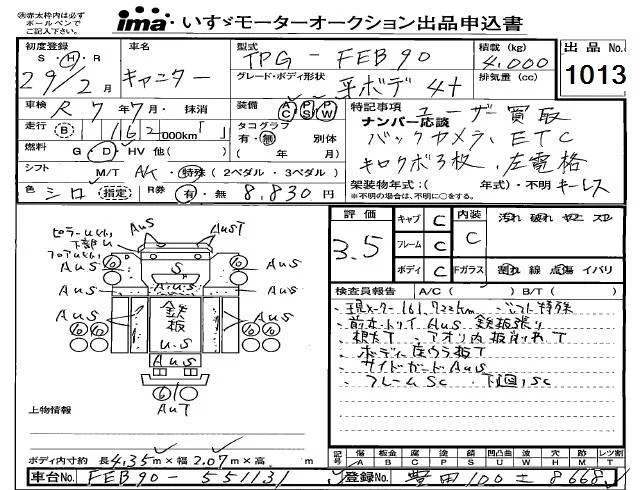 ㊟赤太枠内は必ず
ボールペンで
ご記入下さい。
ima・いすゞモーターオークション出品申込書
初度登録 S・H・R 29/2月
車名 キャンター
型式 TPG-FEB90
積載(kg) 4,000
出品No. 1013
グレード・ボディ形状 平ボデ 4t
排気量(cc)
車検 R 7年7月・抹消
装備 AC PS PW
特記事項 ユーザー買取
ナンバー応談
走行 B 162 000km「 」
タコグラフ 有・無 別体
( 年 月)
バックカメラ、ETC
燃料 G・D・HV 他( )
キロクボ3枚、左電格
シフト M/T AK・特殊(2ペダル・3ペダル)
色 シロ 指定 R券 有・無 8,830円
架装物年式:( 年式)・不明 キーレス
※不明の場合は、不明に○をする。
評価 3.5
キャブ C
フレーム C
ボディ C
内装 C
汚れ 破れ ヤニ スレ
Fガラス 割れ 線 点傷 イバリ
検査員報告 A/C( ) B/T( )
現メーター161,722km シフト特殊
前本トリイAuS 鉄板張り
根太T アオリ内板割れT
ボディ床ウラ板T
サイドガードAuS
フレームSC 下回りSC
ピラーUくり
下部U
フロアUくり
AuS
AuST
S
AuS
AuS
AuS
AuS
鉄板
U・S
AuS
AuS
AuS
AuT
上物情報
ボディ内寸約 長4.35m×幅2.07m×高 m
記号 傷A 板金B 腐C 塗P 錆S 凹凸曲U 波W 穴H 跡M レンズ割T
車台No. FEB90-551131
登録No. 豊田100た8668